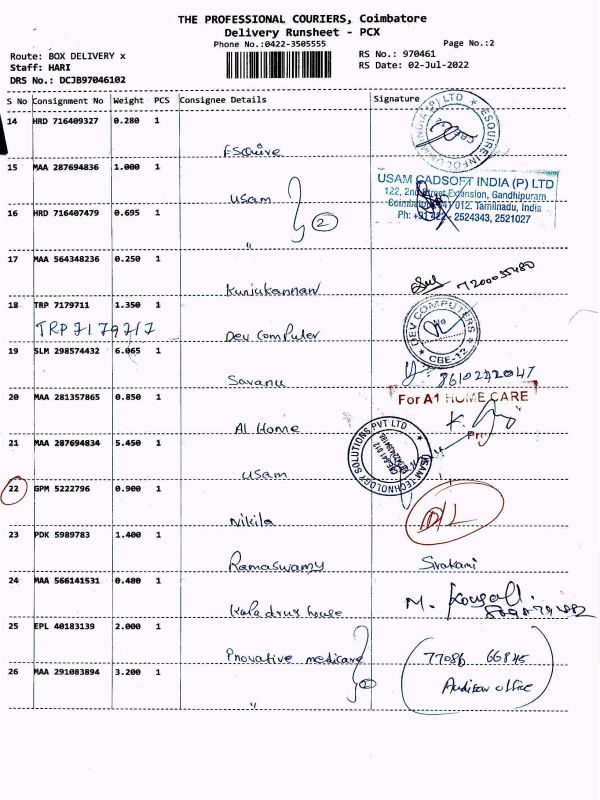 THE PROFESSIONAL COURIERS, Coimbatore
Delivery Runsheet - PCX
Phone No.:0422-3505555
Page No.:2
Route: BOX DELIVERY x
Staff: HARI
DRS No.: DCJB97046102
RS No.: 970461
RS Date: 02-Jul-2022
S No Consignment No Weight PCS Consignee Details Signature
14 HRD 716409327 0.280 1
Esquire
ESQUIRE INFO INDIA (P) LTD
15 MAA 287694836 1.000 1
Usam
USAM CADSOFT INDIA (P) LTD
122, 2nd Street Extension, Gandhipuram
Coimbatore 641 012. Tamilnadu, India
Ph: +91 422 - 2524343, 2521027
16 HRD 716407479 0.695 1
"
2
17 MAA 564348236 0.250 1
Kunjukannan
18 TRP 7179711 1.350 1
TRP 7179717
Dev Computer
DEV COMPUTERS
CBE-12
19 SLM 298574432 6.065 1
Savanu
20 MAA 281357865 0.850 1
A1 Home
For A1 HOME CARE
21 MAA 287694834 5.450 1
Usam
USAM TECHNOLOGY SOLUTIONS PVT LTD
22 GPM 5222796 0.900 1
Nikila
D/L
23 PDK 5989783 1.400 1
Ramaswamy
Sivakami
24 MAA 566141531 0.480 1
Kala drug house
25 EPL 40183139 2.000 1
Pnovative medicare
77086 66845
26 MAA 291083894 3.200 1
"
2
office